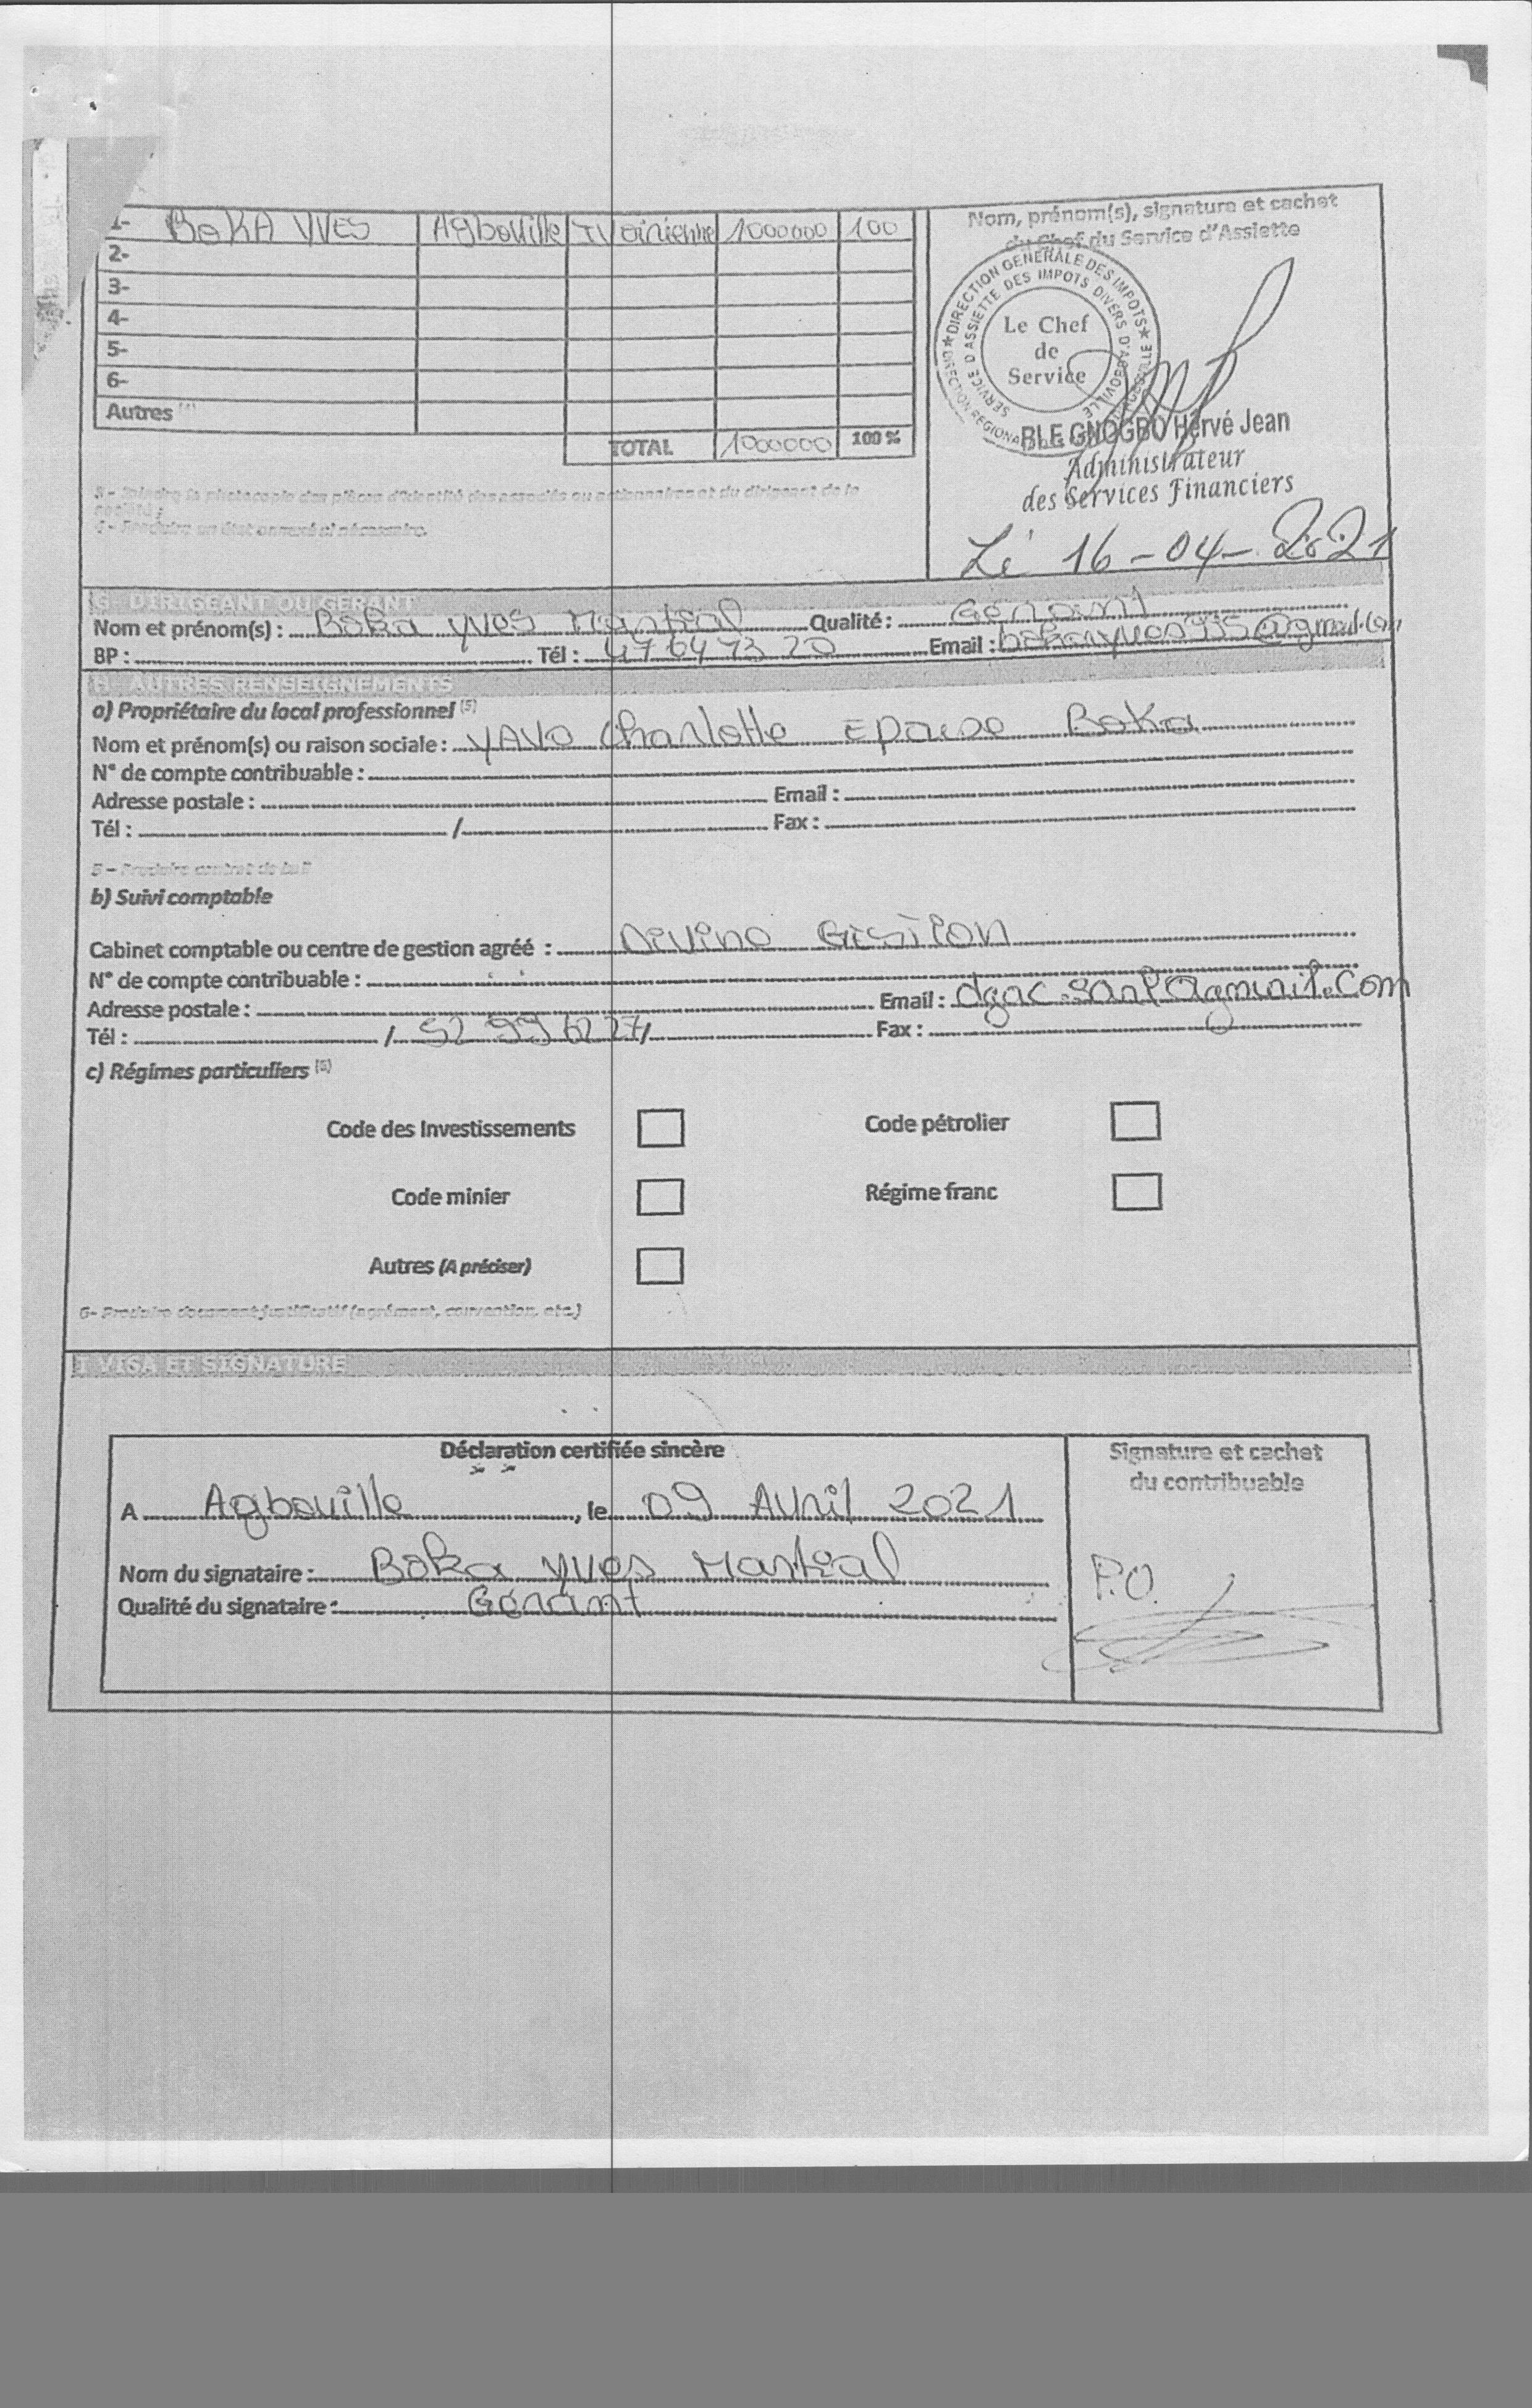 1- BOKA YVES Agboville Ivoirienne 1000000 100
2-
3-
4-
5-
6-
Autres (4)
TOTAL 1000000 100 %
3 – Joindre la photocopie des pièces d'identité des associés ou actionnaires et du dirigeant de la
société ;
4 – Produire un état annexé si nécessaire.
Nom, prénom(s), signature et cachet
du Chef du Service d'Assiette
DIRECTION GENERALE DES IMPOTS
SERVICE D'ASSIETTE DES IMPOTS DIVERS D'AGBOVILLE
Le Chef
de
Service
BLE GNOGBO Hervé Jean
Administrateur
des Services Financiers
Le 16-04-2021
G- DIRIGEANT OU GERANT
Nom et prénom(s) : Boka Yves Martial Qualité : Gérant
BP : Tél : 47 64 73 20 Email :
H- AUTRES RENSEIGNEMENTS
a) Propriétaire du local professionnel (5)
Nom et prénom(s) ou raison sociale : YAVO Charlotte Epouse Boka
N° de compte contribuable :
Adresse postale : Email :
Tél : / Fax :
5 – Produire contrat de bail
b) Suivi comptable
Cabinet comptable ou centre de gestion agréé : Divine Gestion
N° de compte contribuable :
Adresse postale : Email :
Tél : / / Fax :
c) Régimes particuliers (6)
Code des Investissements Code pétrolier
Code minier Régime franc
Autres (A préciser)
6- Produire document justificatif (agrément, convention, etc.)
I VISA ET SIGNATURE
Déclaration certifiée sincère
A Agboville, le 09 Avril 2021
Nom du signataire : Boka Yves Martial
Qualité du signataire : Gérant
Signature et cachet
du contribuable
P.O.